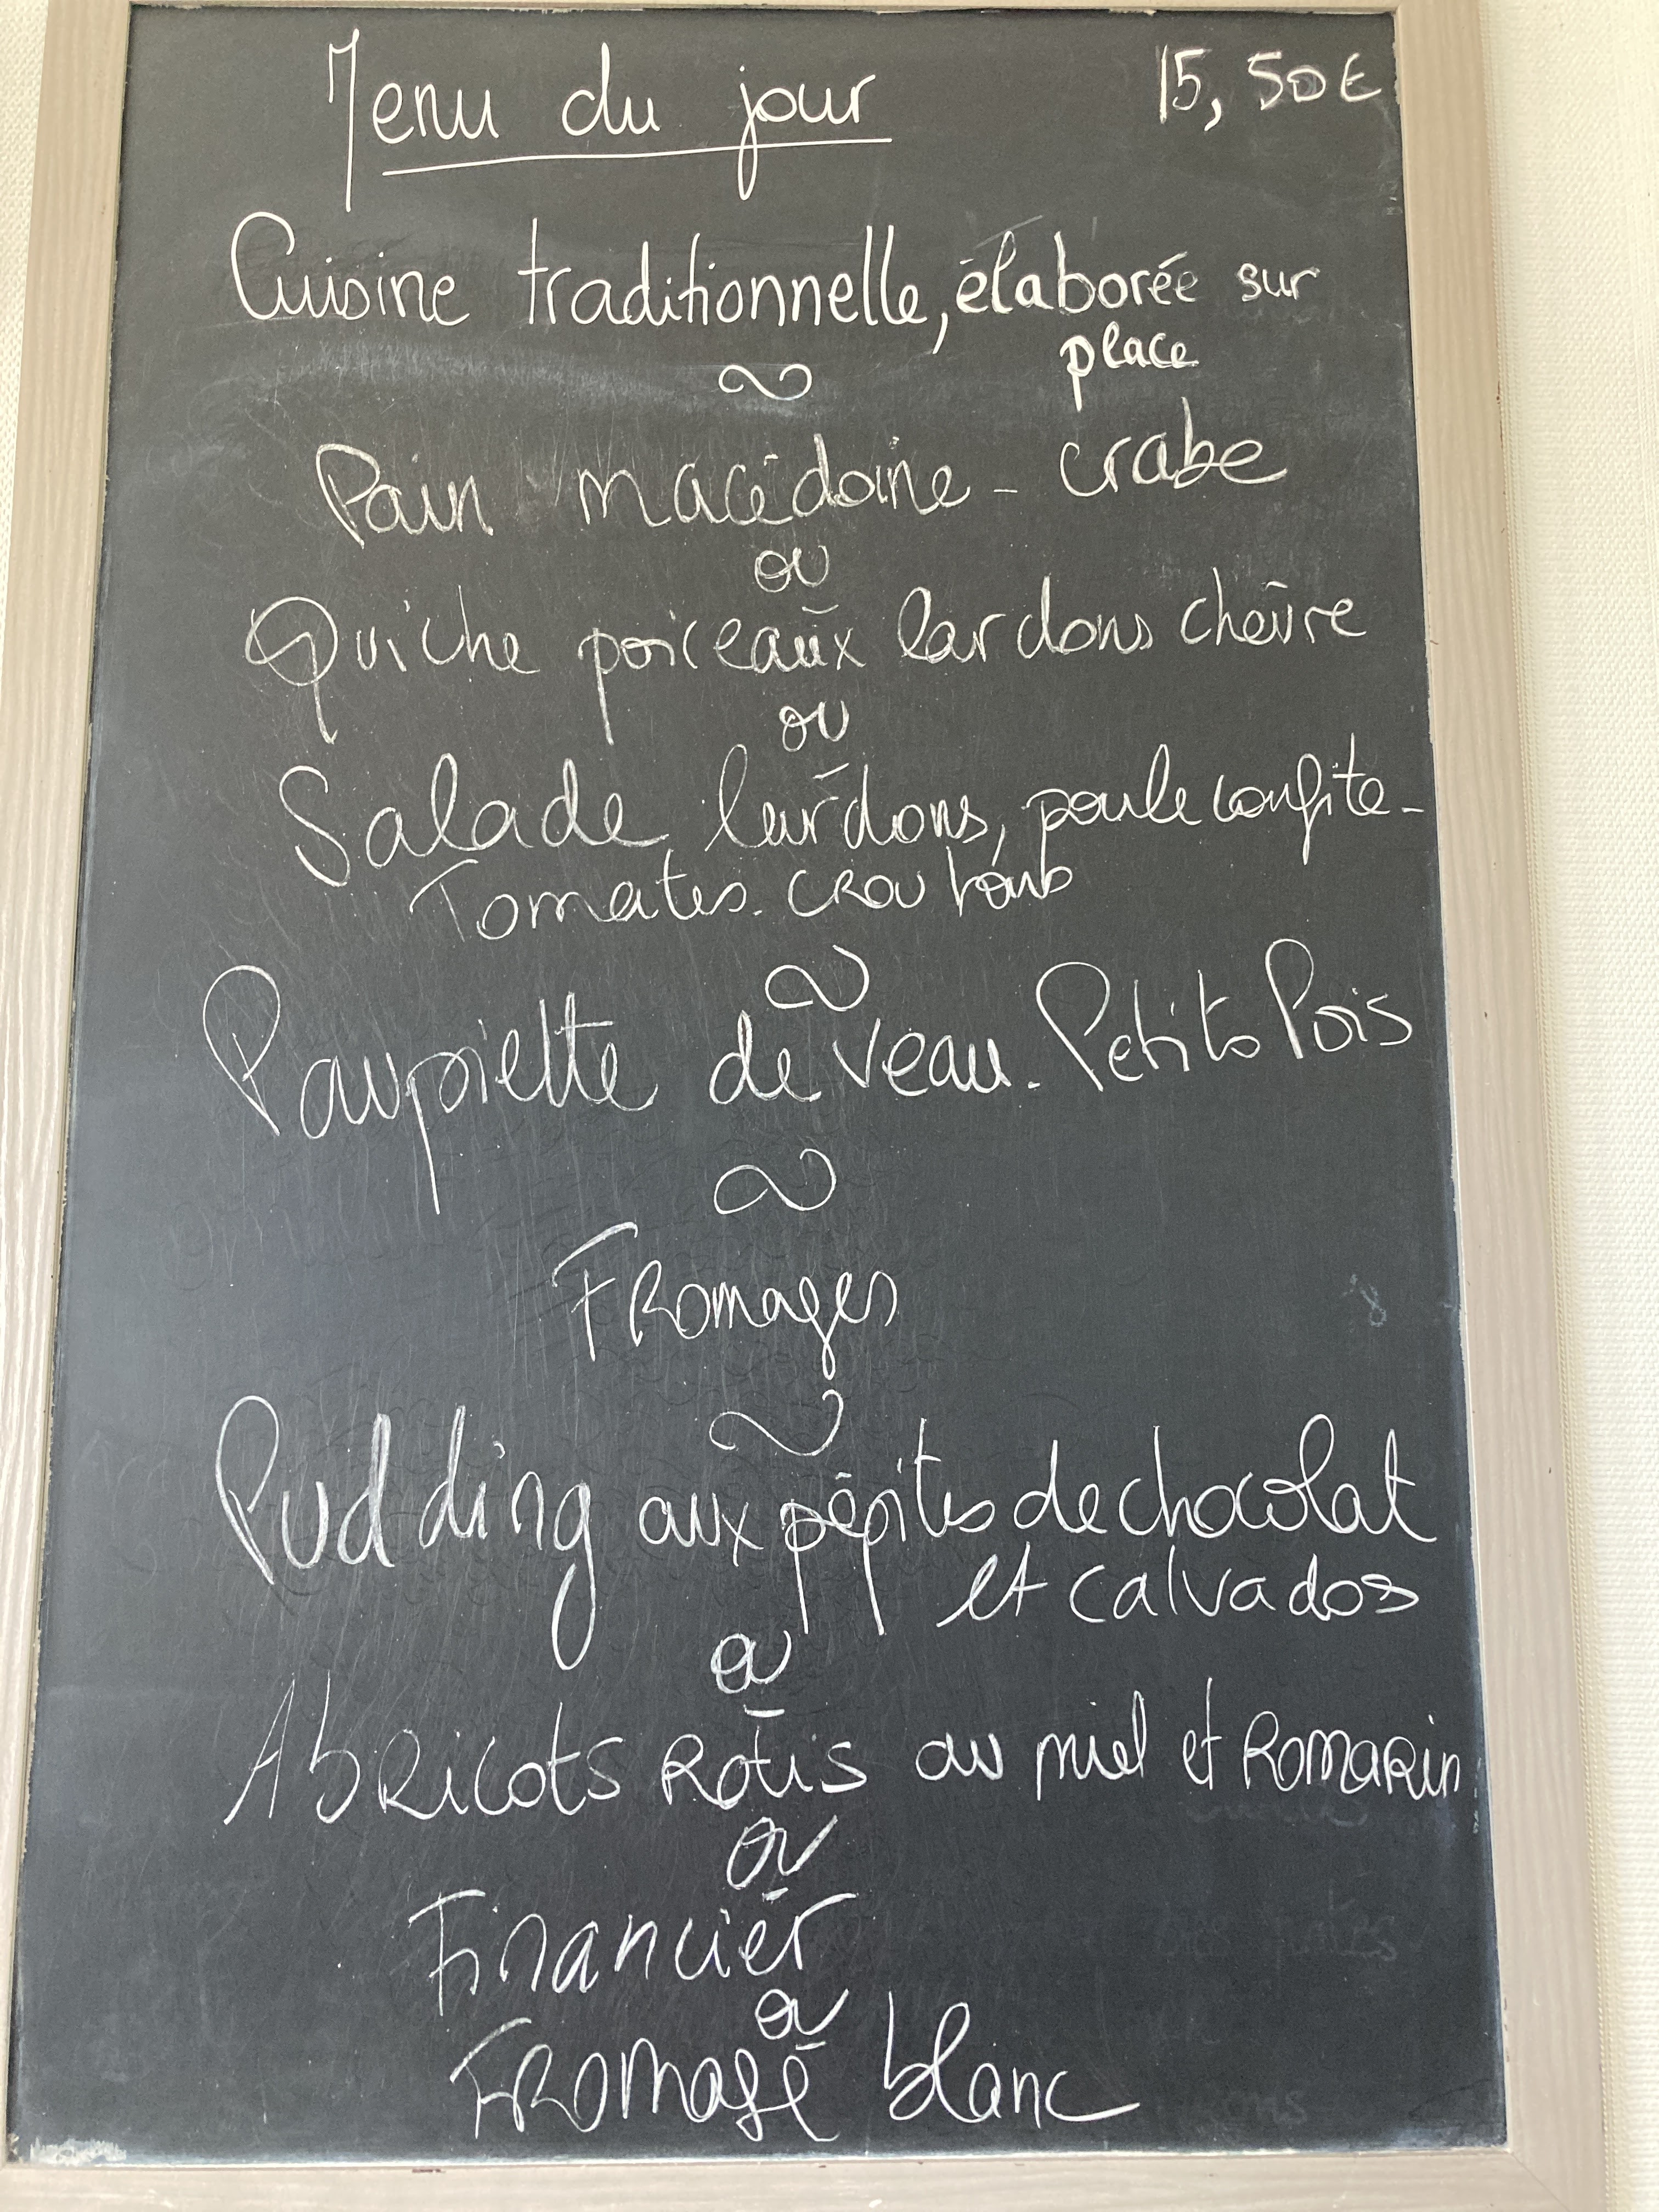 Menu du jour 15,50€
Cuisine traditionnelle, élaborée sur
place
Pain macédoine - crabe
ou
Quiche poireaux lardons chèvre
ou
Salade lardons, poule confite -
Tomates. croutons
Paupiette de veau. Petits Pois
Fromages
Pudding aux pépites de chocolat
et calvados
ou
Abricots Rotis au miel et Romarin
ou
Financier
ou
Fromage blanc